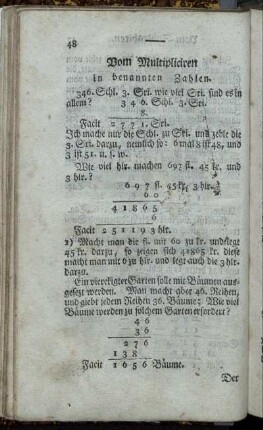 48
Vom Multipliciren
in benannten Zahlen.
346. Schl. 3. Sri. wie viel Sri. sind es in
allem? 346. Schl. 3. Sri.
8.
Facit 2771. Sri.
Ich mache nur die Schl. zu Sri. und zehle die
3. Sri. darzu, nemlich so: 6 mal 8 ist 48, und
3 ist 51. u. s. w.
Wie viel hlr. machen 697 fl. 45 kr. und
3 hlr.?
697 fl. 45 kr. 3 hlr.
60
41865
6
Facit 251193 hlr.
2) Macht man die fl. mit 60 zu kr. und legt
45 kr. darzu, so zeigen sich 41865 kr. diese
macht man mit 6 zu hlr. und legt auch die 3 hlr.
darzu.
Ein viereckigter Garten solle mit Bäumen aus-
gesezt werden. Man macht aber 46. Reihen,
und giebt jedem Reihen 36. Bäume; Wie viel
Bäume werden zu solchem Garten erfordert?
46
36
276
138
Facit 1656 Bäume.
Der